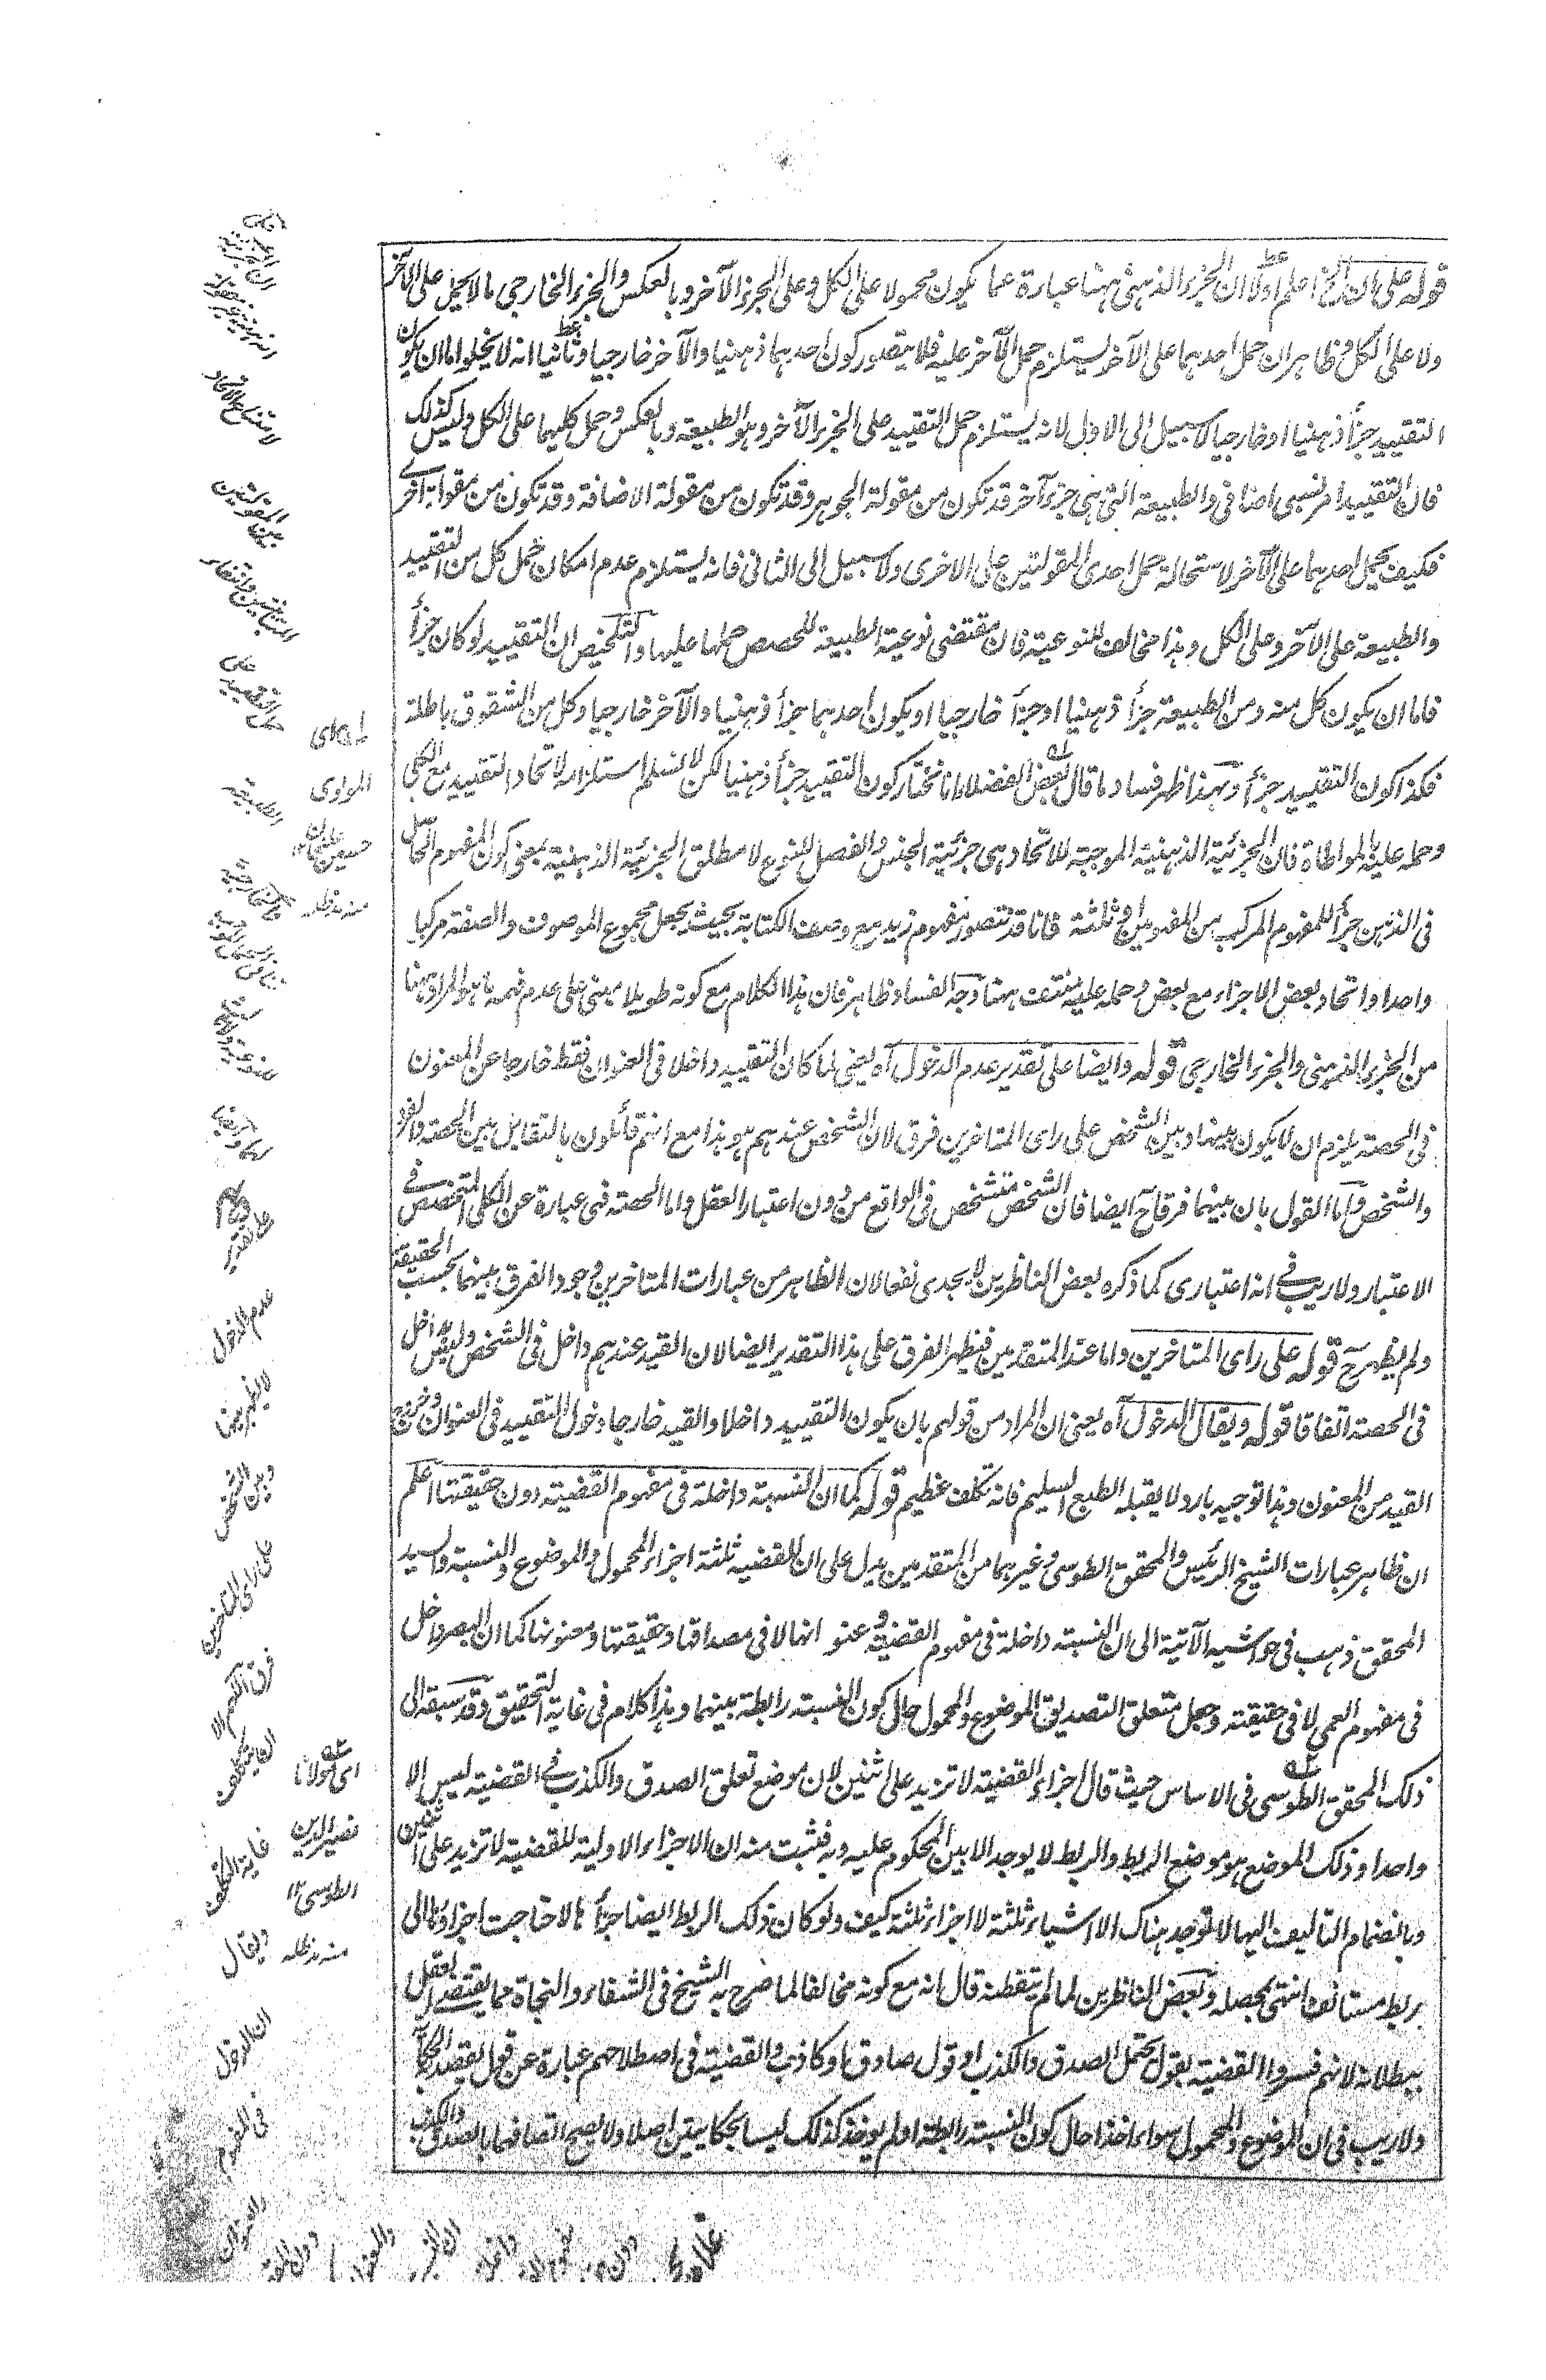 قوله على ان الخ اعلم اولا ان الجزء الذهني ههنا عبارة عما يكون محمولا على الكل وعلى الجزء الآخر وبالعكس والجزء الخارجي ما لا يحمل على الآخر
ولا على الكل وظاهر ان حمل احدهما على الآخر يستلزم حمل الآخر عليه فلا يتصور كون احدهما ذهنيا والآخر خارجيا وثانيا انه لا يخلوا اما ان يكون
التقييد جزأ ذهنيا او خارجيا لا سبيل الى الاول لانه يستلزم حمل التقييد على الجزء الآخر وهو الطبيعة وبالعكس وحمل كليهما على الكل وليس كذلك
فان التقييد امر نسبي اضافي والطبيعة التي هي جزء آخر قد تكون من مقولة الجوهر وقد تكون من مقولة الاضافة وقد تكون من مقولة اخرى
فكيف يحمل احدهما على الآخر لاستحالة حمل احدى المقولتين على الاخرى ولا سبيل الى الثاني فانه يستلزم عدم امكان حمل كل من التقييد
والطبيعة على الآخر وعلى الكل وهذا مخالف للنوعية فان مقتضى نوعية الطبيعة للحصص حملها عليها والتلخيص ان التقييد لو كان جزأ
فاما ان يكون كل منه ومن الطبيعة جزأ ذهنيا او جزأ خارجيا او يكون احدهما جزأ ذهنيا والآخر خارجيا وكل من الشقوق باطلة
فكذا كون التقييد جزأ وبهذا ظهر فساد ما قال بعض الفضلاء انا نختار كون التقييد جزأ ذهنيا لكن لا نسلم استلزامه لاتحاد التقييد مع الكلي
وحمله عليه بالمواطاة فان الجزئية الذهنية الموجبة للاتحاد هي جزئية الجنس والفصل للنوع لا مطلق الجزئية الذهنية بمعنى كون المفهوم الحاصل
في الذهن جزأ للمفهوم المركب من المفهومين او ثلثة فانا قد نتصور مفهوم زيد مع وصف الكتابة بحيث يجعل مجموع الموصوف والصفة مركبا
واحدا واتحاد بعض الاجزاء مع بعض وحمله عليه منتف ههنا وجه الفساد ظاهر فان هذا الكلام مع كونه طويلا مبني على عدم فهمه ما هو المراد ههنا
من الجزء الذهني والجزء الخارجي قوله وايضا على تقدير عدم الدخول آه يعني لما كان التقييد داخلا في العنوان فقط خارجا عن المعنون
في الحصة يلزم ان لا يكون بينها وبين الشخص على راى المتاخرين فرق لان الشخص عندهم هو هذا مع انهم قائلون بالتقابل بين الحصة والفرد
والشخص واما القول بان بينهما فرقا ح ايضا فان الشخص متشخص في الواقع من دون اعتبار العقل واما الحصة فهي عبارة عن الكلي المتخصص في
الاعتبار ولا ريب في انه اعتباري كما ذكره بعض الناظرين لا يجدى نفعا لان الظاهر من عبارات المتاخرين وجود الفرق بينهما بحسب الحقيقة
ولم يظهر ح قوله على راى المتاخرين واما عند المتقدمين فيظهر الفرق على هذا التقدير ايضا لان القيد عندهم داخل في الشخص وليس بداخل
في الحصة اتفاقا قوله ويقال الدخول آه يعني ان المراد من قولهم بان يكون التقييد داخلا والقيد خارجا دخول التقييد في العنوان وخروج
القيد من المعنون وهذا توجيه بارد لا يقبله الطبع السليم فانه تكلف عظيم قوله كما ان النسبة داخلة في مفهوم القضية دون حقيقتها اعلم
ان ظاهر عبارات الشيخ الرئيس والمحقق الطوسى وغيرهما من المتقدمين يدل على ان للقضية ثلثة اجزاء المحمول والموضوع والنسبة والسيد
المحقق ذهب في حواشيه الآتية الى ان النسبة داخلة في مفهوم القضية وعنوانها لا في مصداقها وحقيقتها ومعنونها كما ان البصر داخل
في مفهوم العمى لا في حقيقته وجعل متعلق التصديق الموضوع والمحمول حال كون النسبة رابطة بينهما وهذا كلام في غاية التحقيق وقد سبقه الى
ذلك المحقق الطوسى في الاساس حيث قال اجزاء القضية لا تزيد على اثنين لان موضع تعلق الصدق والكذب في القضية ليس الا
واحدا وذلك الموضع هو موضع الربط والربط لا يوجد الا بين المحكوم عليه وبه فثبت منه ان الاجزاء الاولية للقضية لا تزيد على اثنين
وبانضمام التاليف اليها لا توجد هناك الا اشياء ثلثة لا اجزاء ثلثة كيف ولو كان ذلك الربط ايضا جزأ لاحتاجت اجزاؤها الى
ربط مستانف انتهى بحصله وبعض الناظرين لما لم يتفطنه قال انه مع كونه مخالفا لما صرح به الشيخ في الشفاء والنجاة مما يقتضى العقل
ببطلانه لانهم فسروا القضية بقول يحتمل الصدق والكذب او قول صادق او كاذب والقضية في اصطلاحهم عبارة عن قول يقصد به الحكاية
ولا ريب في ان الموضوع والمحمول سواء اخذا حال كون النسبة رابطة او لم يوخذ كذلك ليسا بحكايتين اصلا ولا يصح اتصافهما بالصدق والكذب
اى
المولوى
منه مدظله
اى مولانا
نصير الدين
الطوسى ١٢
منه مدظله
عدم الدخول
وبين الشخص
على راى المتاخرين
ويقال
ان الدخول
في المفهوم